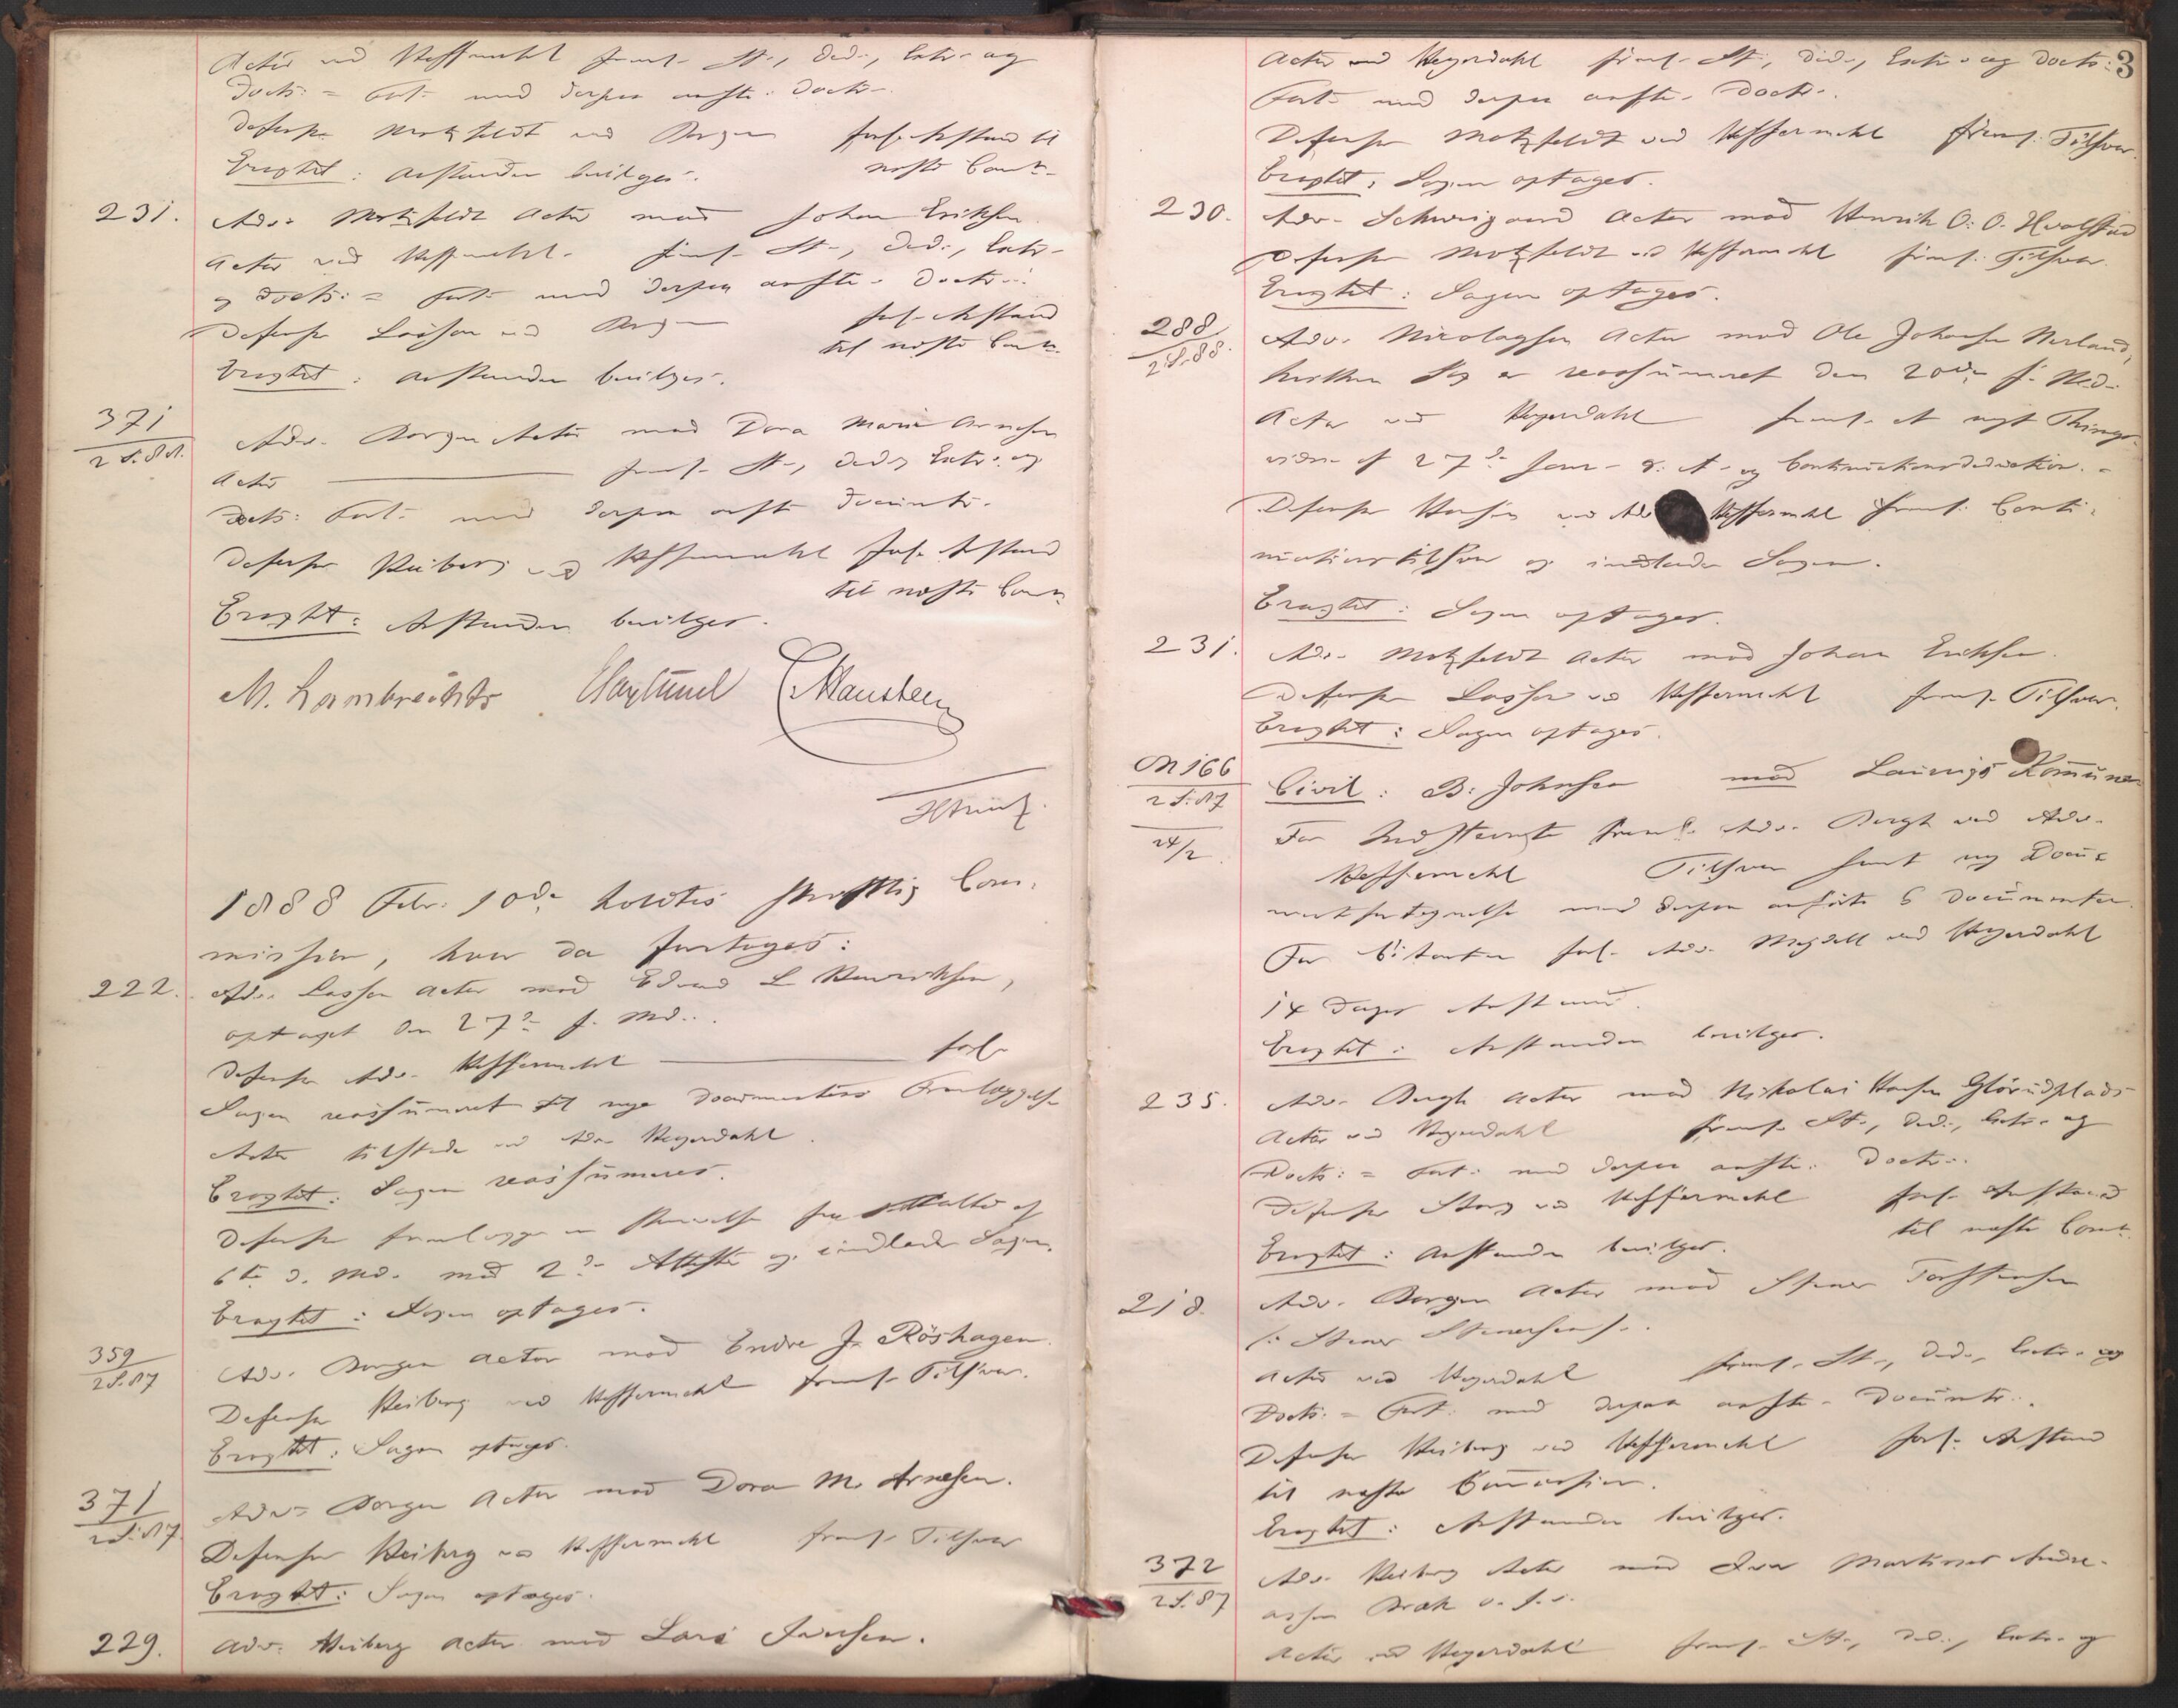 Actor ved Heffermehl freml. St., Ded., Extr. og
Docts: = Fort. med derpaa anførte. Docts.
Defensor Motzfeldt ved Borgen forl. Anstand til
næste Comm.
Eragtet: Anstanden bevilges.
231. Adv. Motzfeldt Actor mod Johan Eriksen
Actor ved Heffermehl. freml. St., Ded., Extr.
og Docts: = Fort. med derpaa anførte. Docts.
Defensor Lasson ved Borgen forl. Anstand
til næste Comm.
Eragtet: Anstanden bevilges.
371
2 S. 87. Adv. Borgen Actor mod Dora Marie Arnesen
Actor freml. St., Ded., Extr. og
Docts: Fort. med derpaa anførte Documts.
Defensor Heiberg ved Heffermehl forl. Anstand
til næste Comm.
Eragtet: Anstanden bevilges.
M. Lambrechts Hagtund Hansteen
1888 Febr. 10de holdtes skriftlig Com-
mission, hvor da foretages:
222. Adv. Lasson Actor mod Edvard L Henriksen,
optaget den 27de f. Md.
Defensor Adv. Heffermehl forl.
Sagen reassumeret til nye Documenters Fremlæggelse
Actor tilstede ved Adv. Heyerdahl.
Eragtet: Sagen reassumeres.
Defensor fremlægger en Skrivelse fra af
6te d. Md. med 2de Attester og indlader Sagen.
Eragtet: Sagen optages.
359
2 S. 87 Adv. Borgen Actor mod Endre J. Röshagen.
Defensor Heiberg ved Heffermehl freml. Tilsvar.
Eragtet: Sagen optages.
371
2 S. 87. Adv. Borgen Actor mod Dora M. Arnesen.
Defensor Heiberg ved Heffermehl freml. Tilsvar
Eragtet: Sagen optages.
229. Adv. Heiberg Actor mod Lars Iversen.
3
Actor ved Heyerdahl freml. St., Ded., Extr. og Docts:
Fort. med derpaa anførte. Docts.
Defensor Motzfeldt ved Heffermehl freml. Tilsvar.
Eragtet: Sagen optages.
230. Adv. Schweigaard Actor mod Henrik O. O. Hvalstad
Defensor Motzfeldt ved Heffermehl freml. Tilsvar.
Eragtet: Sagen optages.
288
2 S. 88. Adv. Nicolaysen Actor mod Ole Johnsen Nerland,
hvilken Sag er reassumeret den 20de f. Md.
Actor ved Heyerdahl freml. et nyt Things-
vidne af 27de Jan. d. A. og Continuationsdeduction.
Defensor ved Adv. Heffermehl freml. Conti-
nuationstilsvar og indlader Sagen.
Eragtet: Sagen optages.
231. Adv. Motzfeldt Actor mod Johan Eriksen.
Defensor Lasson ved Heffermehl freml. Tilsvar.
Eragtet: Sagen optages.
166
2 S. 87
24/2 Civil: B. Johnsen mod Laurvigs Kommune
For Indstevnte freml. Adv. Bergh ved Adv.
Heffermehl Tilsvar samt ny Docu-
mentfortegnelse med derpaa anførte 6 Documenter.
For Citanten forl. Adv. Mejdell ved Heyerdahl
14 Dages Anstand.
Eragtet: Anstanden bevilges.
235. Adv. Bergh Actor mod Nikolai Hansen Glörudplads
Actor ved Heyerdahl freml. St., Ded., Extr. og
Docts: = Fort. med derpaa anførte. Docts.
Defensor Stang ved Heffermehl forl. Anstand
til næste Comm.
Eragtet: Anstanden bevilges.
218. Adv. Borgen Actor mod Stener Torstensen
/: Stener Stenersen :/.
Actor ved Heyerdahl freml. St., Ded., Extr. og
Docts. = Fort. med derpaa anførte. Documts.
Defensor Heiberg ved Heffermehl forl. Anstand
til næste Commission.
Eragtet: Anstanden bevilges.
372
2 S. 87 Adv. Heiberg Actor mod Ivar Martinus Andre-
assen Bræk o. fl.
Actor ved Heyerdahl freml. St., Ded., Extr. og